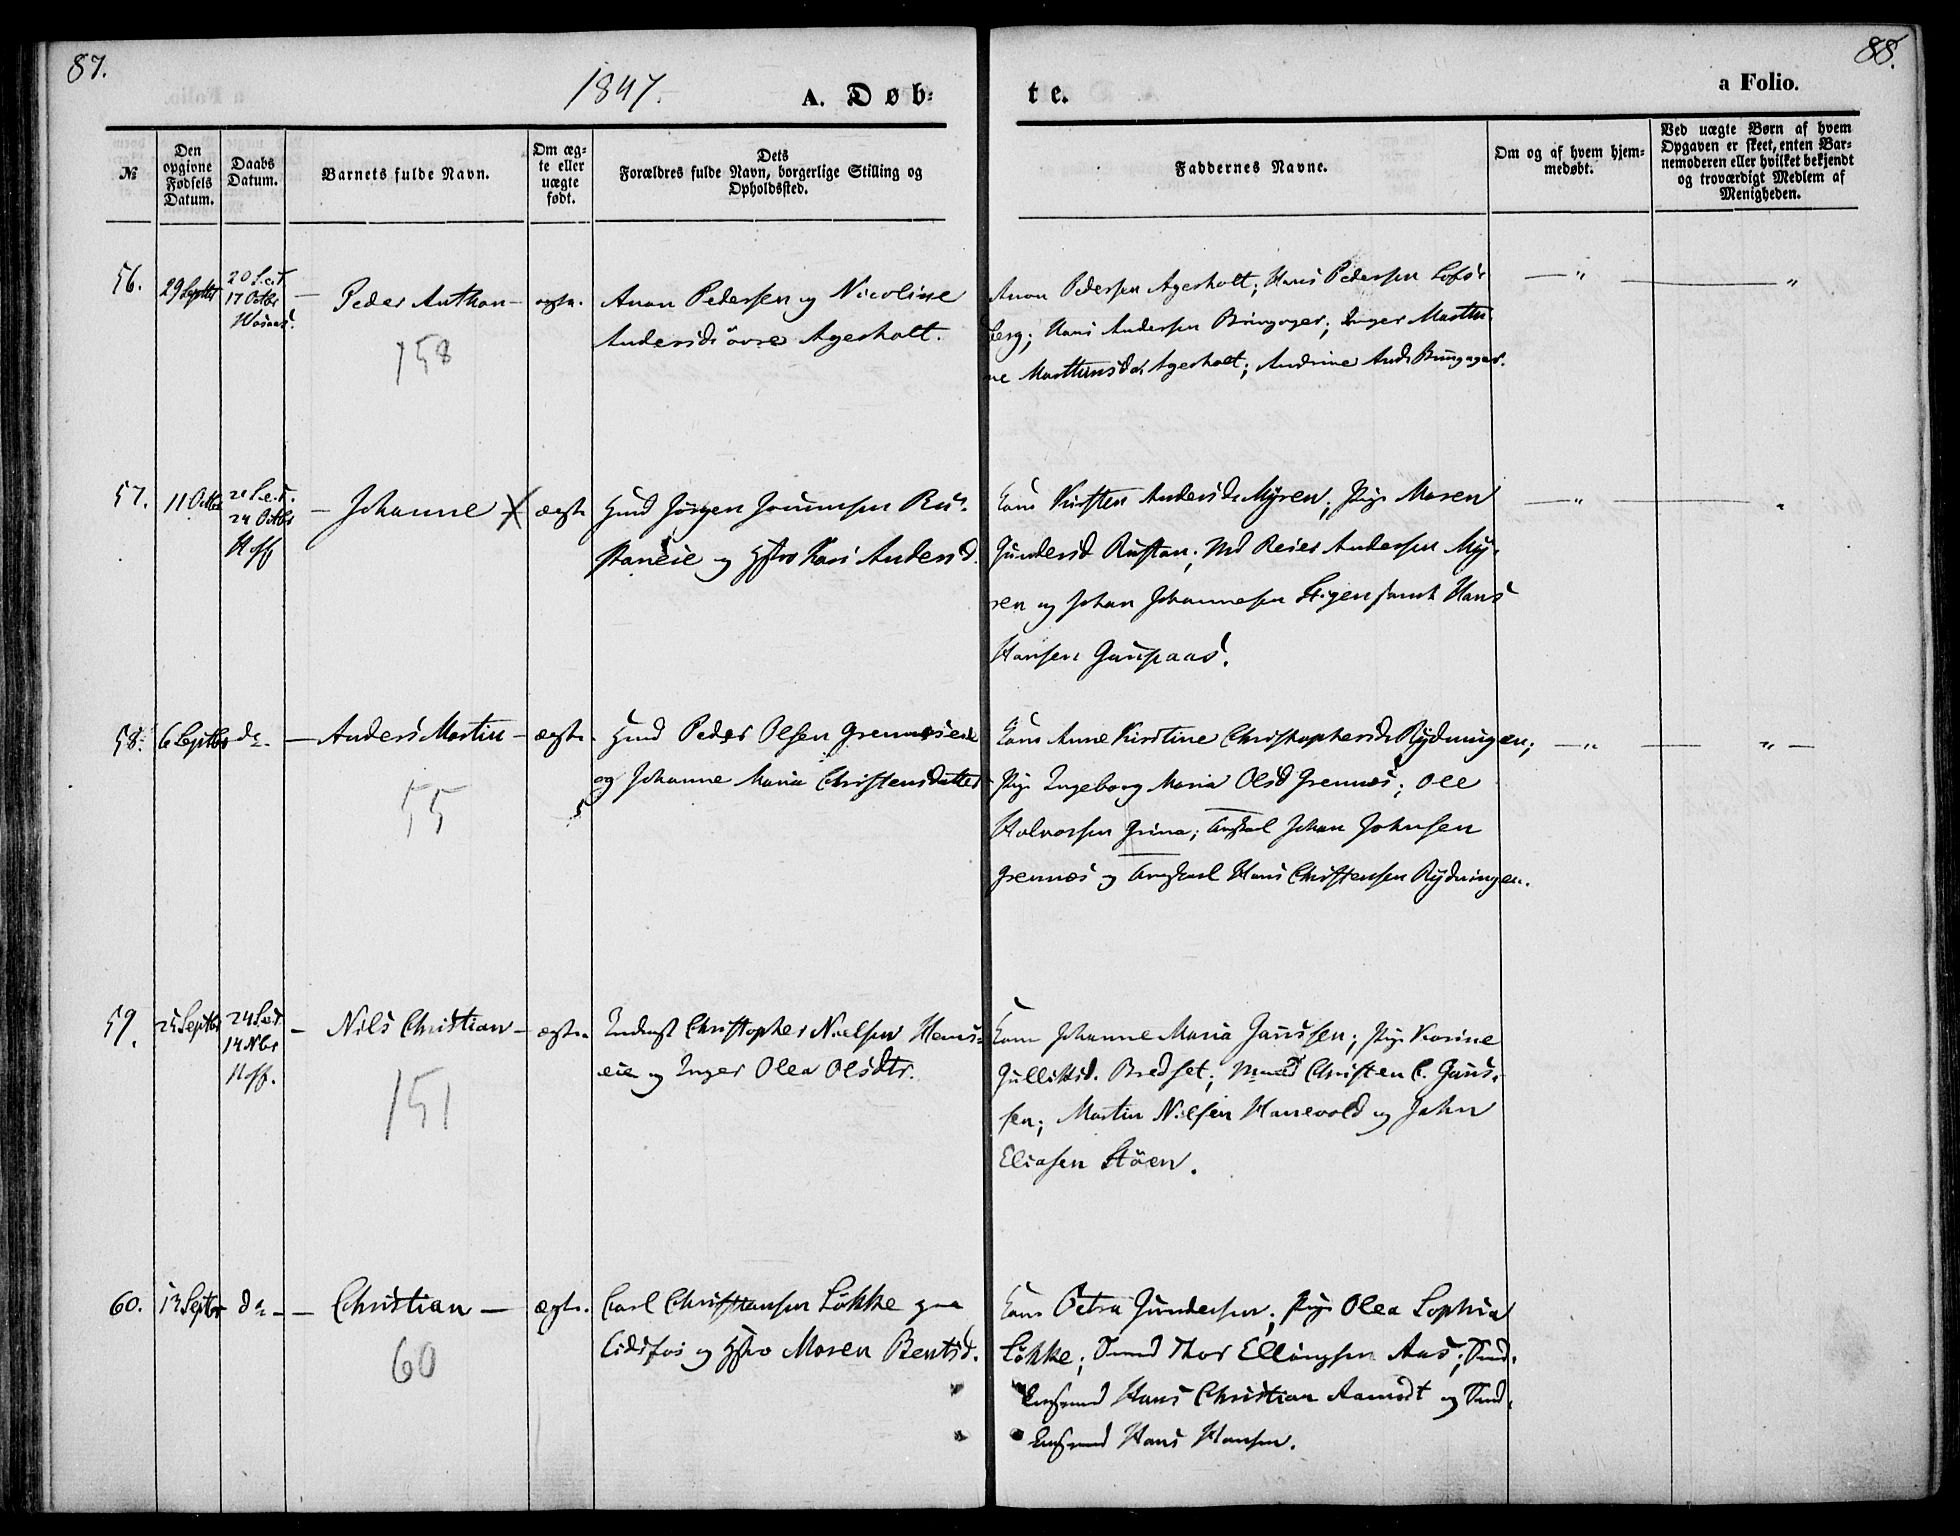 87.
1847.
A. Døb-
te.
88.
a Folio.
№
Den opgivne Fødsels Datum.
Daabs Datum.
Barnets fulde Navn.
Om æg-
te eller
uægte
født.
Dets
Forældres fulde Navn, borgerlige Stilling og
Opholdssted.
Faddernes Navne.
Om og af hvem hjem-
medøbt.
Ved uægte Børn af hvem
Opgaven er skeet, enten Bar-
nemoderen eller hvilket bekjendt
og troværdigt Medlem af
Menigheden.
56.
29 Septbr
20 S.e.T.
17 Octbr
— Peder Anthon —
158
ægte.
Anon Pedersen og Nicoline
Andersdr övre Agerholt.
Anon Pedersen Agerholt; Hans Pedersen Lofs-
berg; Hans Andersen Bringager; Inger Marthi-
ne Marthinsdr Agerholt; Andrine Andr Bringager.
— " —
— " —
57.
11 Octbr
21 S.e.T.
24 Octbr
Hoff
— Johanne X
ægte
Huusmd Jörgen Rus-
taneie og Hstro Kari Andersd.
Kone Kirsten Andersdr Myren; Pige Maren
Gundersd Rustan; Md Reier Andersen My-
ren og Johan Johannesen Stigen samt Hans
Hansen Gaupaas.
— " —
"
58.
6 Septbr
do.
— Anders Martin —
55
ægte.
Huusmd Peder Olsen Grennæseie
og Johanne Maria Christensdatter
Kone Anne Kirstine Christophersdr Rydningen;
Pige Ingeborg Maria Olsd Grennæs; Ole
Halvorsen Grina; Ungkarl Johan Johnsen
Grennæs og Ungkarl Hans Christensen Rydningen.
— " —
— " —
59.
25 Septbr
24 S.e.T.
14 Nbr
Hoff.
— Nils Christian —
151
ægte.
Inderst Christopher Nielsen Hems-
eie og Inger Olea Olsdtr.
Kone Johanne Maria Janssen; Pige Karine
Gulliksd. Bredset; Mand Christen C. Jans-
sen; Martin Nilsen Hanevold og John
Eliasen Stöen.
60.
13 Septbr
do —
— Christian —
60
ægte.
Carl Christiansen Løkke paa
Eidsfos og Hstro Maren Bentsd.
Kone Petra Gundersen; Pige Olea Sophia
Løkke; Smed Thor Ellingsen Aas;
Hans Christian Aamodt og
Hans Hansen.